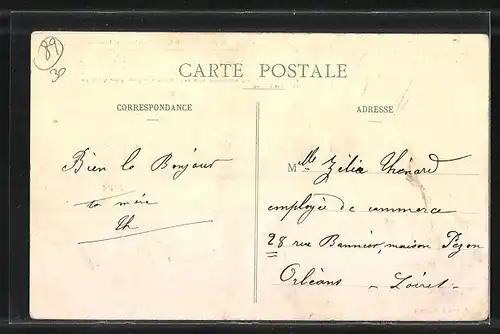 89
30
CARTE POSTALE
CORRESPONDANCE
Bien le Bonjour
ta mère
Th
ADRESSE
Mlle Zélia Thénard
employée de commerce
28 rue Bannier, maison Pezon
Orléans - Loiret -